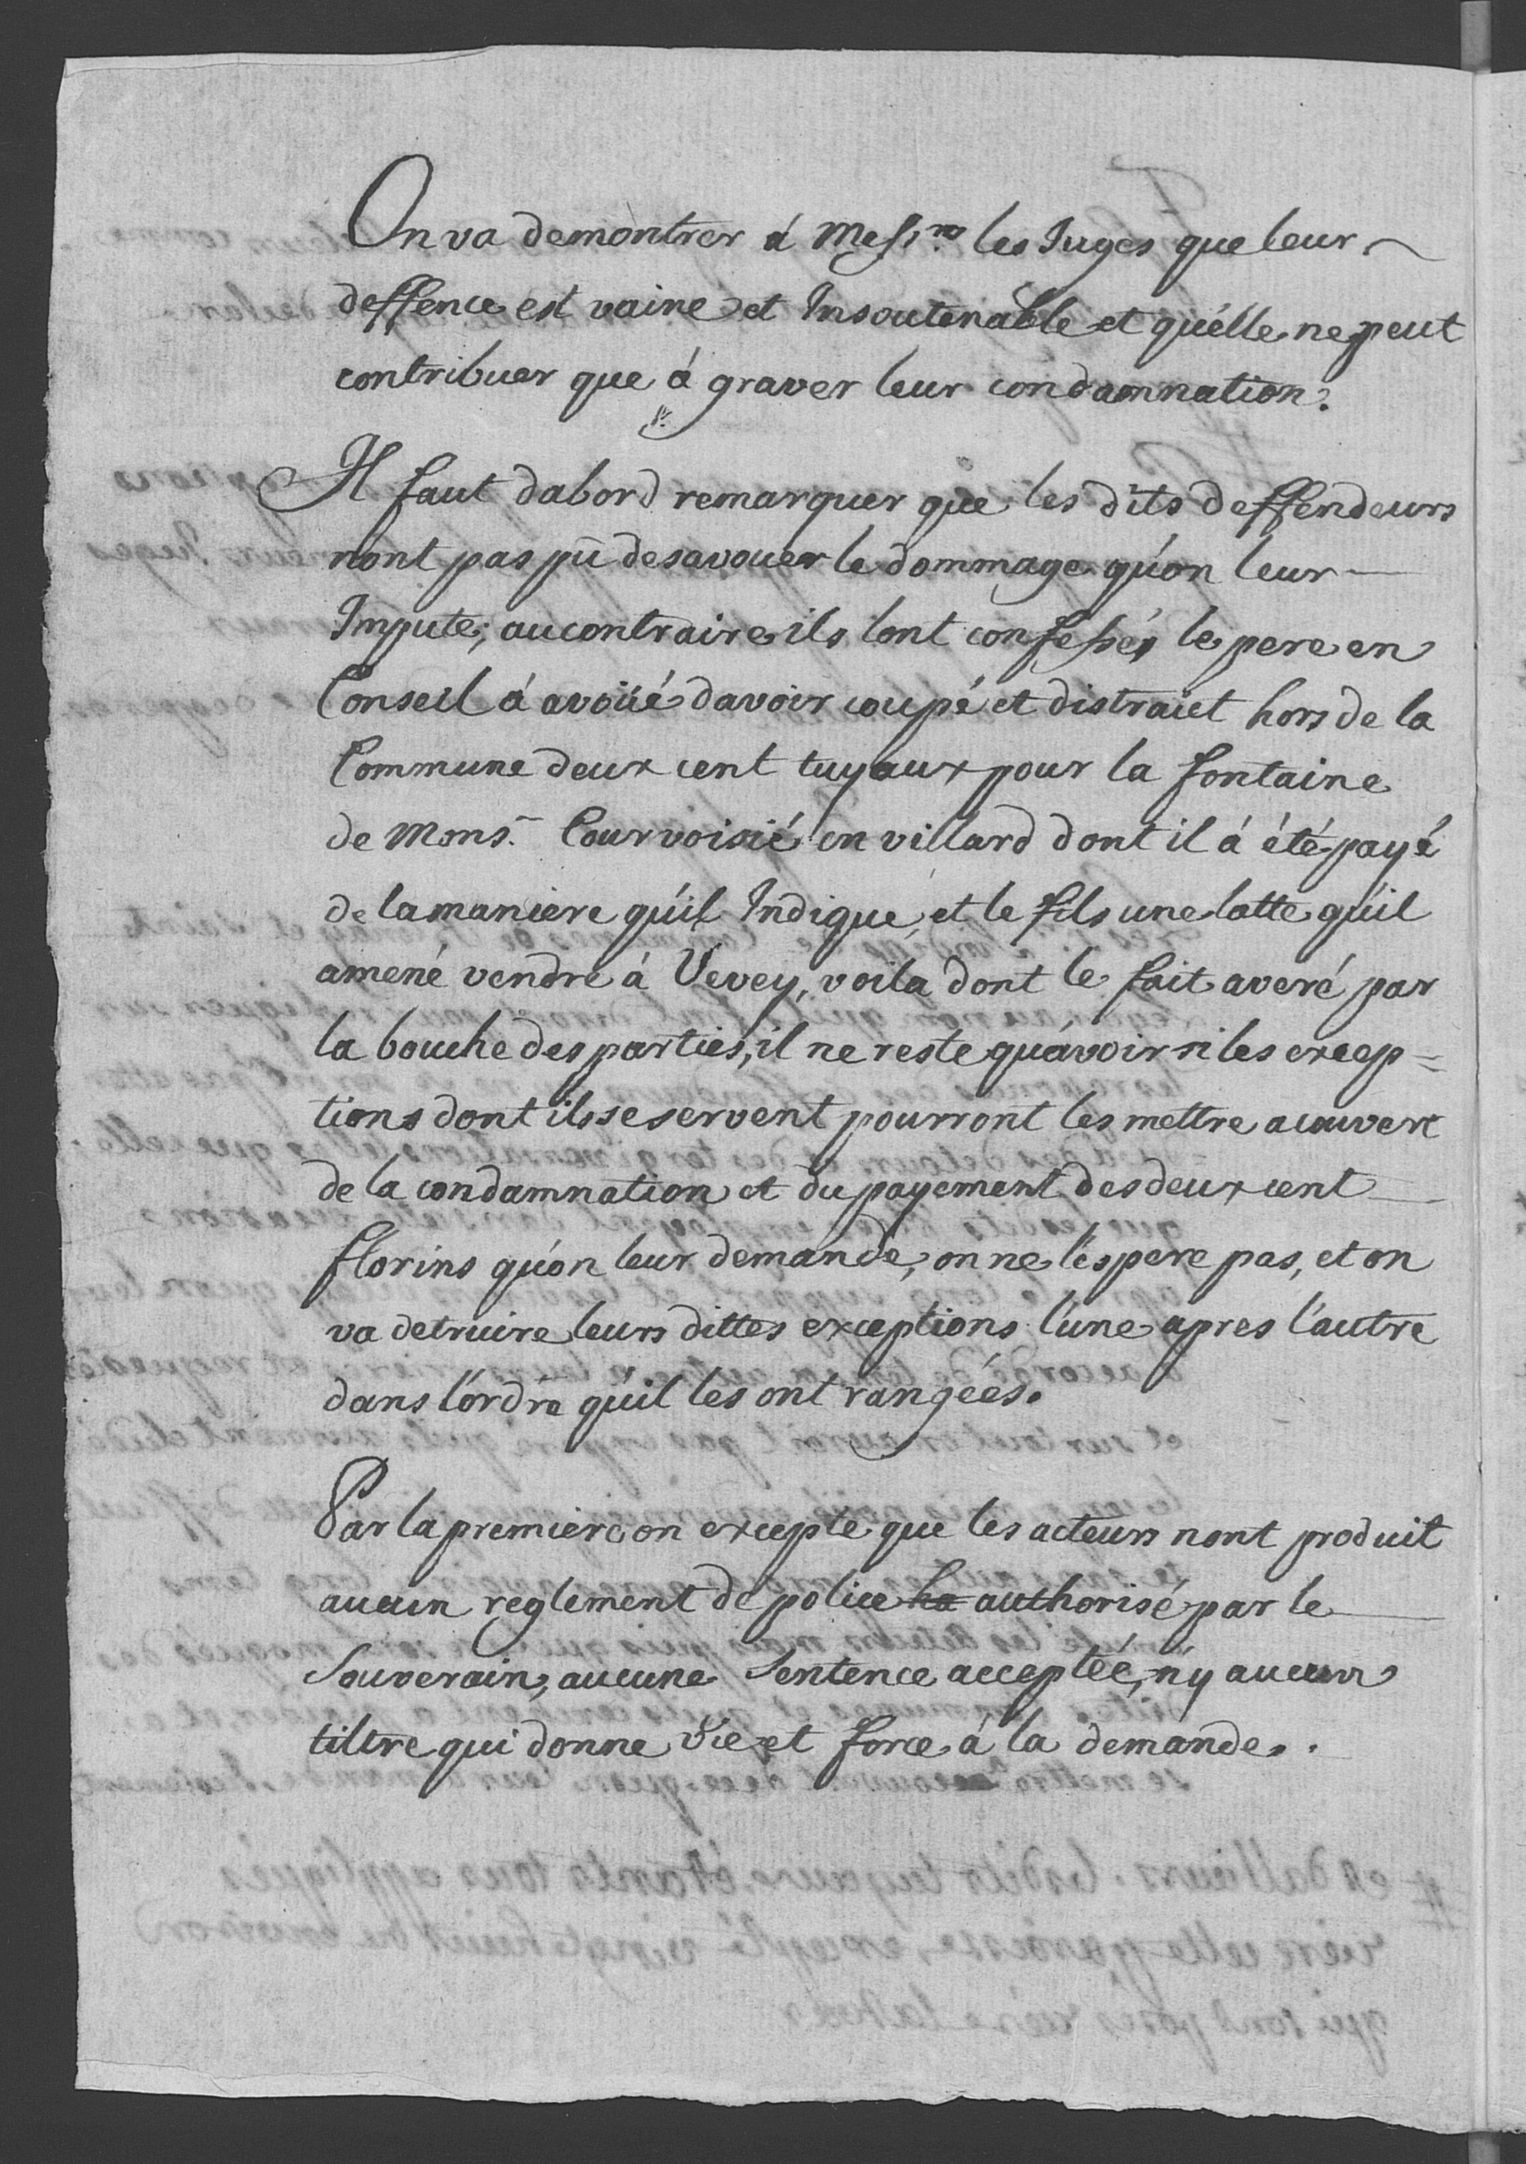 On va demontrer á Messrs. les Juges que leur
deffence est vaine et Insoutenable et qu'élle ne peut
contribuer que á graver leur condamnation.
Il faut dabord remarquer que les dits deffendeurs
nont pas pû desavouer le dommage qu'on leur
Impute; aucontraire ils lont confessés le pere en
Conseil á avoüé davoir coupé et distrait hors de la
Commune deux cent tuyaux pour la fontaine
de Mons. Courvoisié en villard dont il á été payé
de la maniere qu'il Indique, et le fils une latte qu'il
amené vendre á Vevey, voila dont le fait averé par
la bouche des parties, il ne reste qu'ávoir si les excep=
tions dont ils se servent pourront les mettre a couvert
de la condamnation et du payement des deux cent
florins qu'on leur demande, on ne l'espere pas, et on
va detruire leurs dittes exceptions l'une apres l'autre
dans l'ordre qu'il les ont rangées.
Par la premiere on excepte que les acteurs nont produit
aucun reglement de police authorisé par le
Souverain, aucune Sentence acceptée, n'y aucun
tiltre qui donne vie et force á la demande.